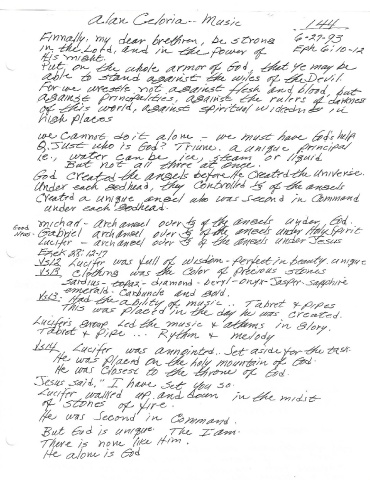 Alan Celoria -- Music
144
6-27-93
Eph 6:10-12
Finnally, my dear brethren, be strong
in the Lord, and in the power of
His might.
Put on the whole armor of God, that ye may be
able to stand against the wyles of the Devil.
For we wrestle not against flesh and blood, but
against principalities, against the rulers of darkness
of this world, against spiritual wickedness in
high places
We cannot do it alone - we must have God's help
Q. Just who is God? Triune. a unique principal
ie., water can be ice, steam or liquid.
But not all three at once.
God created the angels before He created the Universe.
Under each Godhead, they controlled 1/3 of the angels
Created a unique angel who was second in Command
under each Godhead.
Michael - archangel over 1/3 of the angels under God.
Good News
Gabriel archangel over 1/3 of the angels under Holy Spirit
Lucifer - archangel over 1/3 of the angels under Jesus
Ezek 28:12-17
Vs12 Lucifer was full of wisdom - perfect in beauty. unique
Vs13 clothing was the color of precious stones
sardius - topaz - diamond - beryl - onyx - Jasper - Sapphire
emerald - Carbuncle and gold.
Vs13: Had the ability of music... Tabret & Pipes
This was placed in the day he was created.
Lucifer's group led the music & athems in Glory.
Tabret & Pipe ... Rythm & melody
Vs14 Lucifer was annointed. Set aside for the task.
He was placed on the holy mountain of God.
He was closest to the throne of God.
Jesus said, "I have set you so.
Lucifer walked up and down in the midst
of stones of fire.
He was second in Command.
But God is unique. The I am.
There is none like Him.
He alone is God